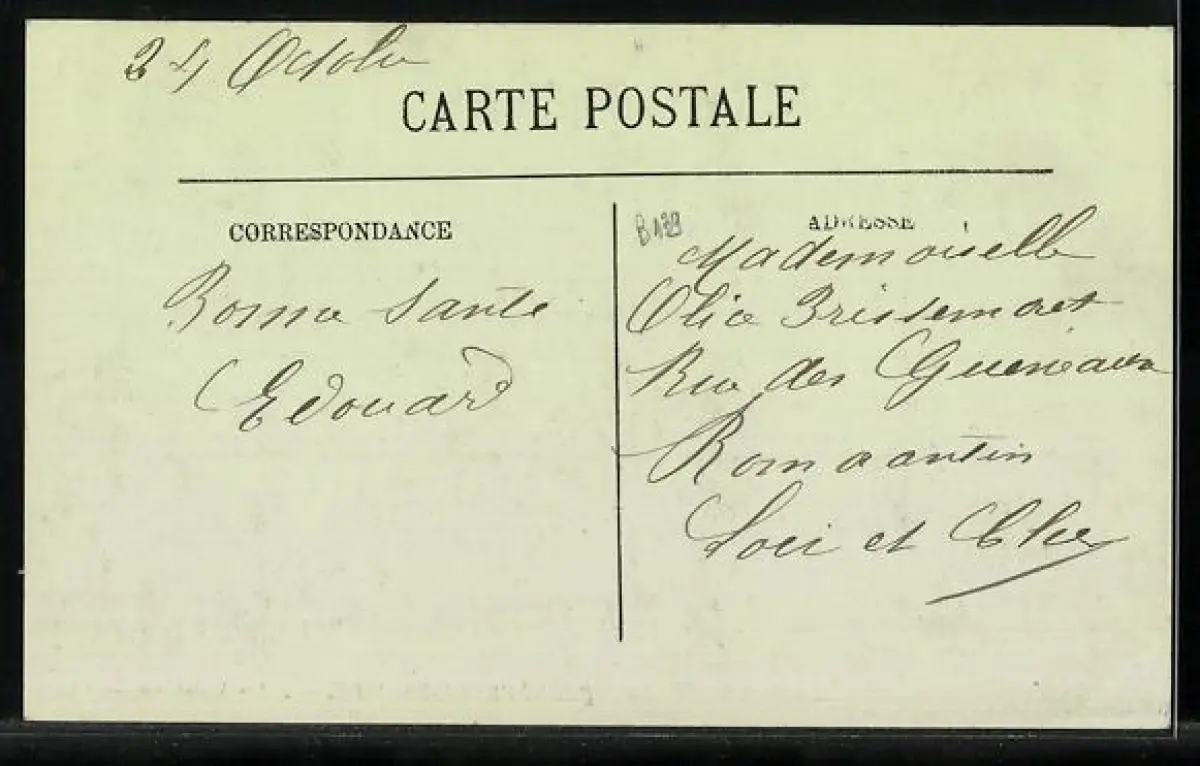 24 Octobre
CARTE POSTALE
CORRESPONDANCE
Bonne Santé
Edouard
B133
ADRESSE
Mademoiselle
Olia Brissemoret
Rue des
Romorantin
Loir et Cher